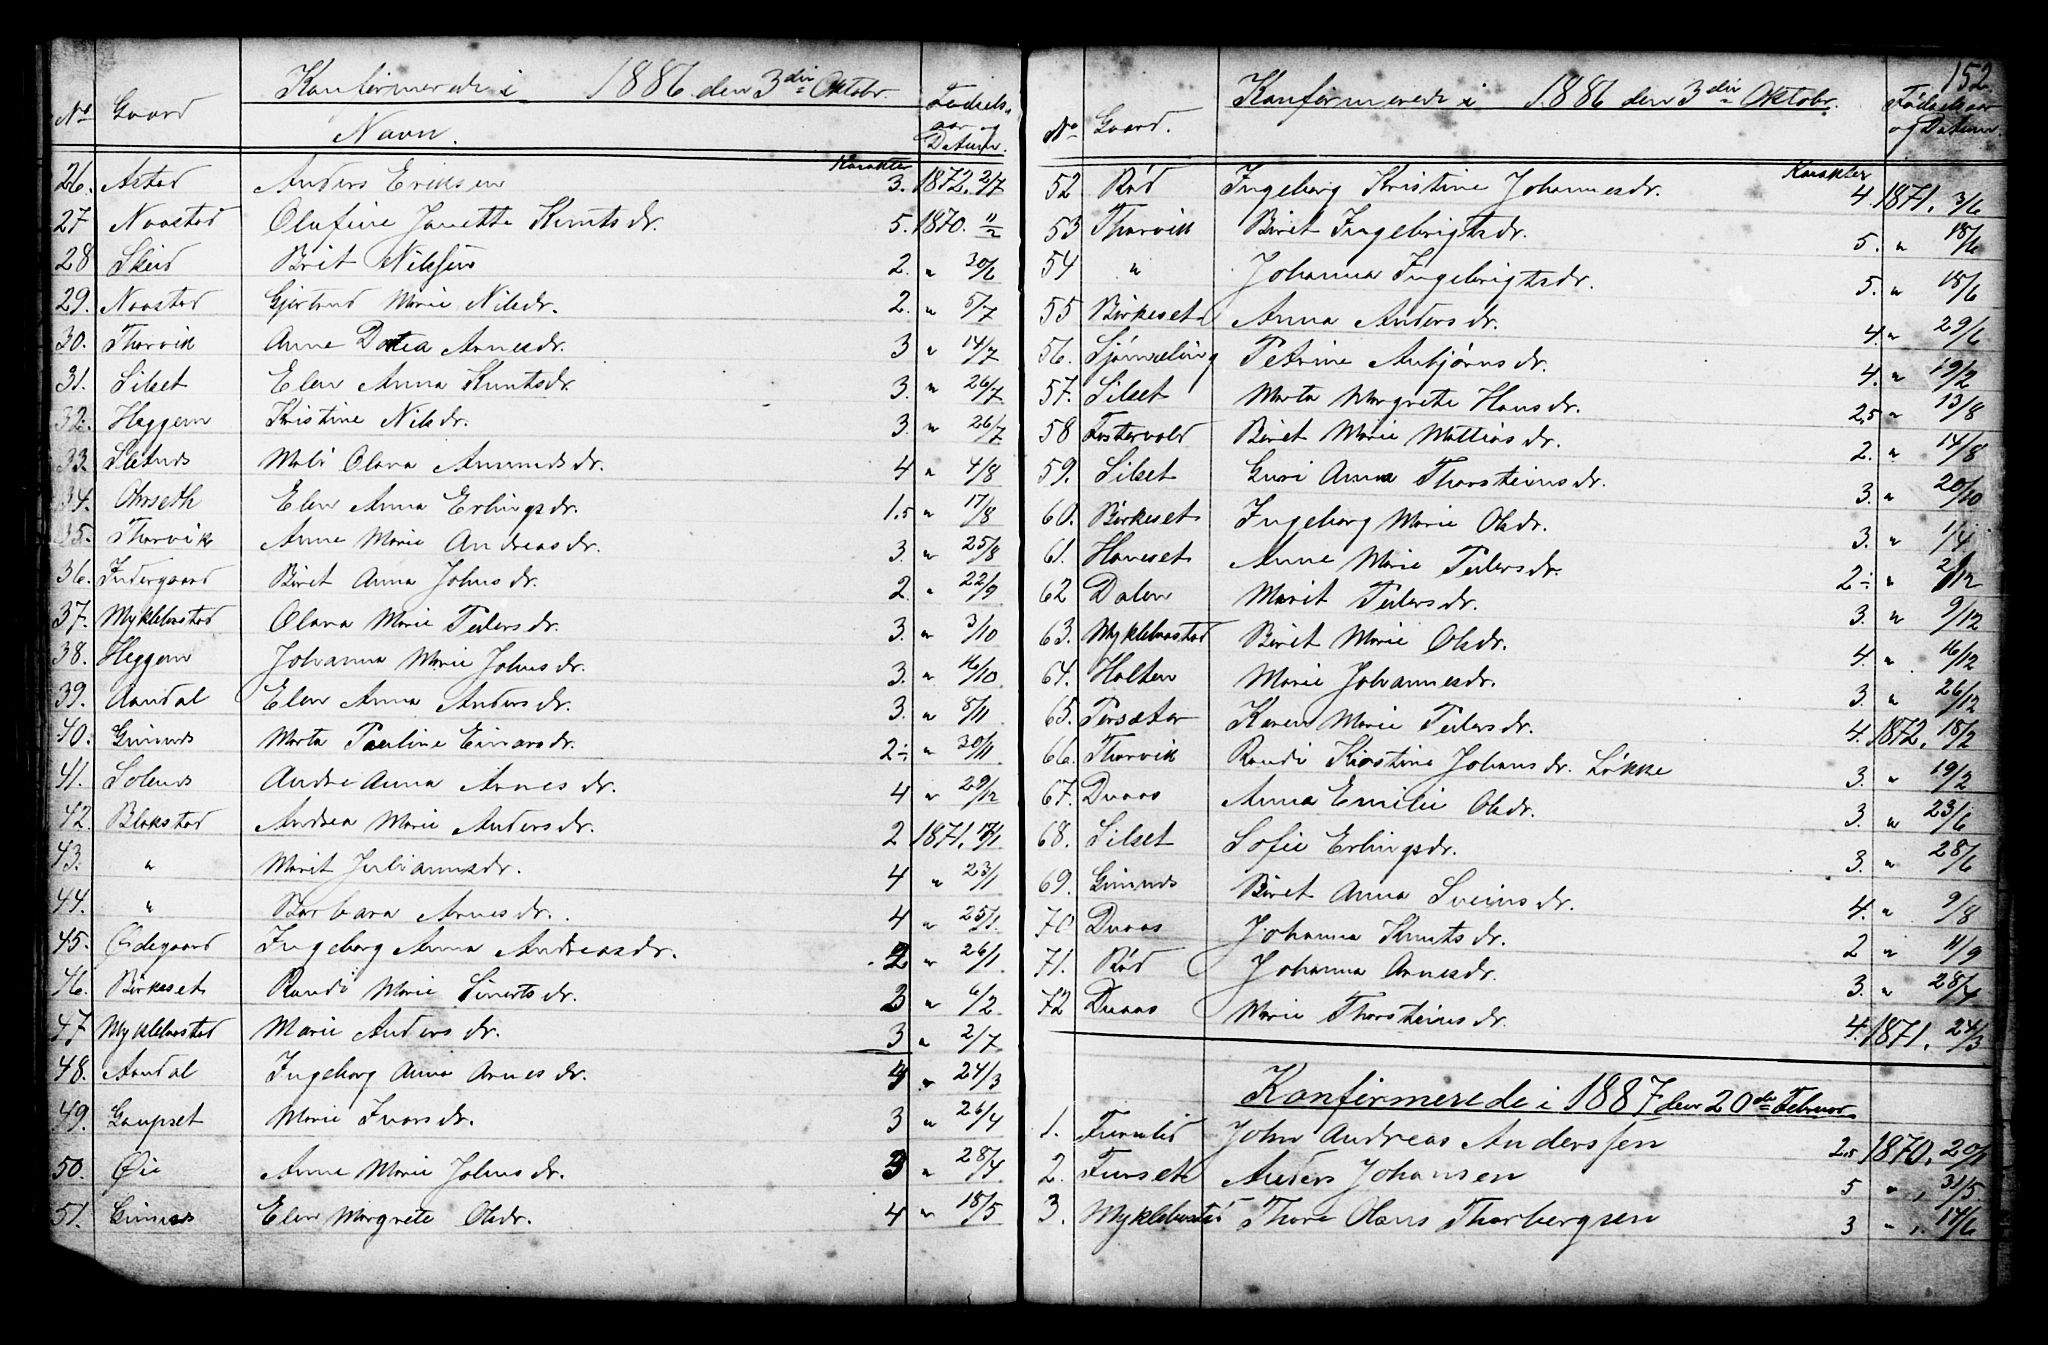 Konfirmerede i 1886 den 3die Oktobr.
No Gaard Navn. Karakter Fødsels- aar og Datum.
26. Astad Anders Eriksen 3. 1872. 2/7
27 Naastad Olufine Janette Knutsdr. 5. 1870. "/2
28 Skeid Brit Nilsen 2. " 30/6
29. Naastad Gjertrud Marie Nilsdr. 2. " 5/7
30. Thorvik Anne Dortea Arnesdr. 3 " 14/7
31. Silset Elen Anna Knutsdr. 3. " 26/7
32. Heggem Kristine Nilsdr. 3. " 26/7
33. Mali Olava Amundsdr. 4 " 4/8
34. Ohrseth Elen Anna Erlingsdr. 1.5 " 17/8
35. Thorvik Anne Marie Andreasdr. 3. " 25/8
36. Indergaard Beret Anna Johnsdr. 2. " 22/9
37. Myklebostad Olava Marie Pedersdr. 3. " 3/10
38. Heggem Johanna Marie Johnsdr. 3. " 16/10
39. Aandal Elen Anna Andersdr. 3. " 8/11
40. Gimnes Marta Pauline Einarsdr. 2÷ " 30/11
41. Solnes Andreanna Arnesdr. 4 " 29/12
42. Blakstad Andrea Marie Andersdr. 2 1871. 17/1
43. " Marit Juliannesdr. 4 " 23/1
44. " Barbara Arnesdr. 4 " 25/1.
45. Ødegaard Ingeborg Anna Andreasdr. 2 " 26/1
46. Birkeset Randi Marie Sivertsdr. 3 " 6/2
47 Myklebostad Marie Andersdr. 3 " 2/7
48. Aandal Ingeborg Anna Arnesdr. 4 " 24/3
49. Gaupset Marie Ivarsdr. 3 " 26/4
50. Øie Anne Marie Johnsdr. 3 " 28/4
51. Gimnes Elen Margrete Olsdr. 4 " 18/5
152.
Konfirmerede i 1886 den 3die Oktobr.
No Gaard. Karakter Fødselsaar og Datum.
52 Rød Ingeborg Kristine Johannesdr. 4 1871. 3/6
53 Thorvik Beret Ingebrigtsdr. 5. " 18/6
54 " Johanna Ingebrigtsdr. 5. " 18/6
55 Birkeset Anna Andersdr. 4. " 29/6
56. Sjømæling Petrine Anbjørnsdr. 4. " 19/2
57. Silset Marta Margrete Hansdr. 2.5 " 13/8
58 Fostervold Beret Marie Mattiasdr. 2. " 14/8
59. Silset Guri Anna Thorsteinsdr. 3. " 20/10
60. Birkeset Ingeborg Marie Olsdr. 3. " 1/4
61. Haneset Anne Marie Pedersdr. 2÷ " 2/12
62 Dalen Marit Pedersdr. 3. " 9/12
63. Myklebostad Beret Marie Olsdr. 4. " 16/12
64. Holten Marie Johannesdr. 3. " 26/12
65. Persæter Karen Marie Pedersdr. 4. 1872. 18/2
66. Thorvik Randi Kirstine Johansdr. Løkke 3. " 19/2
67. Duaas Anna Emilie Olsdr. 3. " 23/6
68. Silset Sofie Erlingsdr. 3. " 28/6
69. Gimnes Beret Anna Sveinsdr. 4. " 9/8
70 Duaas Johanna Knutsdr. 2 " 11/9
71. Rød Johanna Arnesdr. 3. " 28/4
72 Duaas Marie Thorsteinsdr. 4. 1871. 24/3
Konfirmerede i 1887 den 20de Februar
1. Furulid John Andreas Anderssen 2.5 1870. 20/1
2. Furset Anders Johansen 5 " , 31/5
3. Myklebostad Thore Olaus Thorbergsen 3 " , 14/6